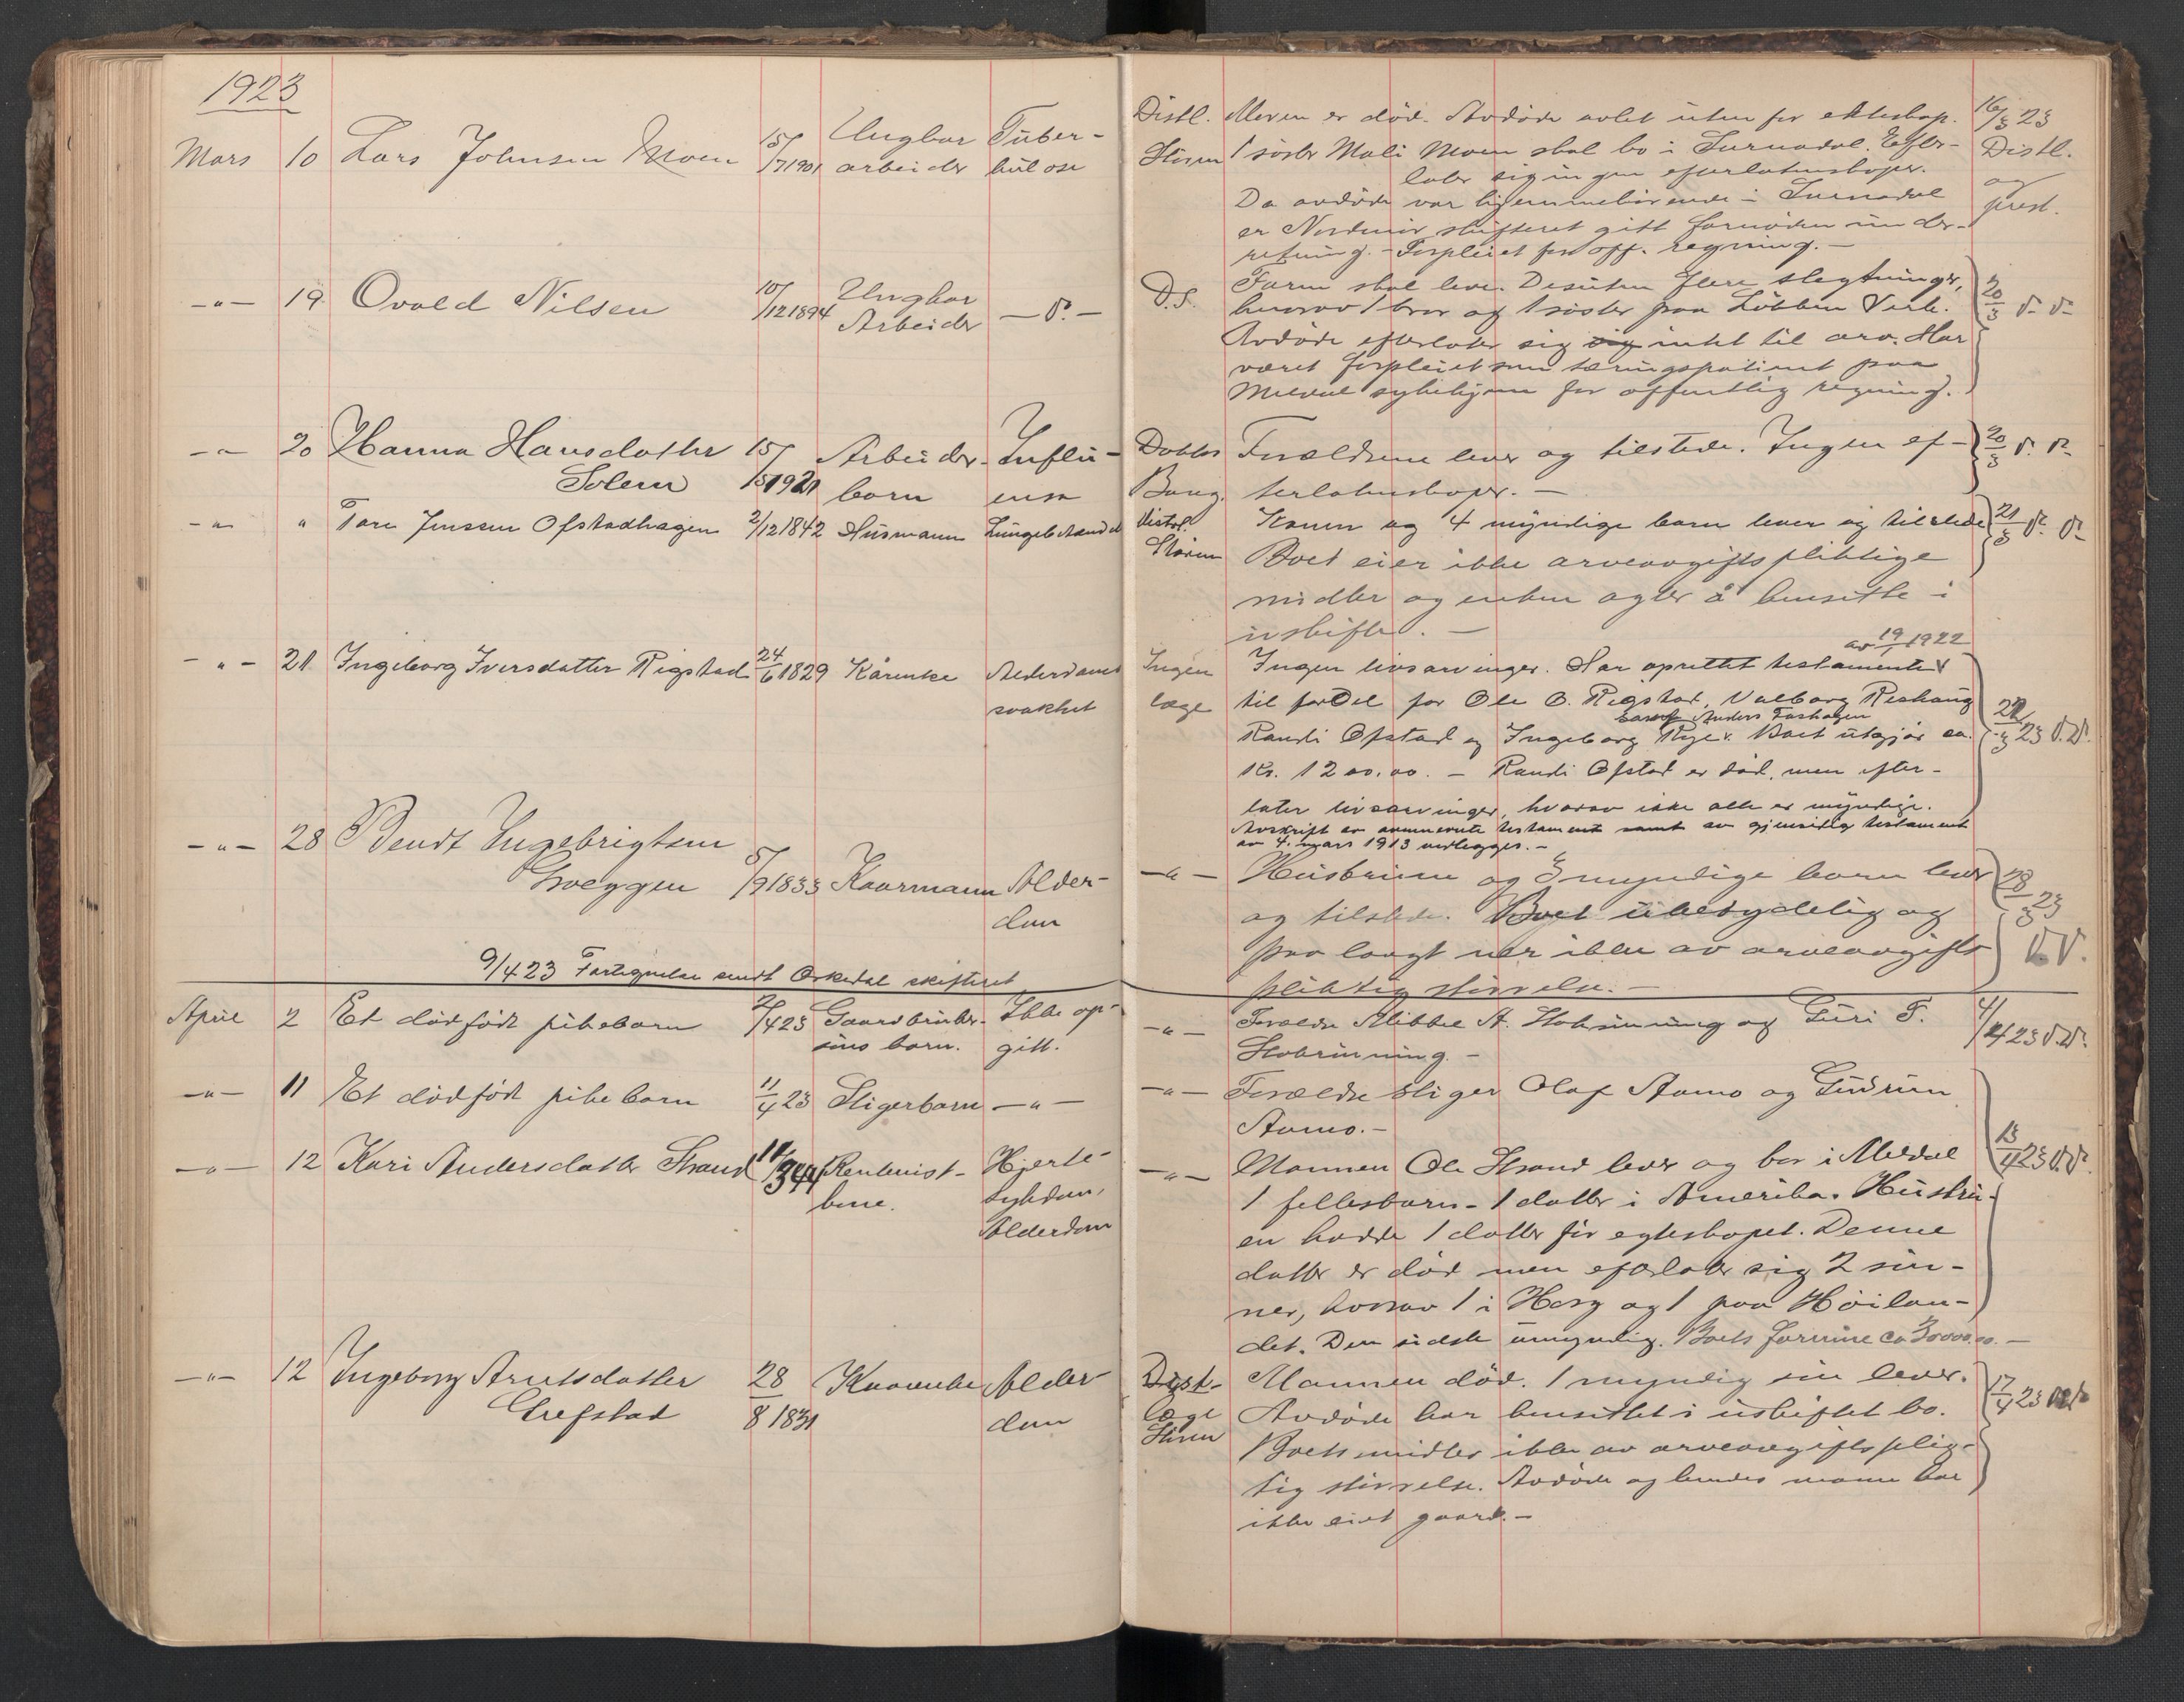 1923
Mars 10 Lars Johnsen Moen 15/7 1901 Ungkar Tuber-
arbeider kulose
Distl. Moren er død. Avdøde avlet uten for ekteskap. 16/3 23
Støren 1 søster Mali Moen skal bo i Surnadal. Efter- Distl.
later sig ingen efterlatenskaper. og
Da avdøde var hjemmehørende i Surnadal prest.
er Nordmør skifteret gitt fornøden under-
retning. - Forpleiet for off. regning. -
-"- 19 Osvald Nilsen 10/12 1894 Ungkar
Arbeider - D. -
D.S. Faren skal leve. Desuten flere slegtninger,
hvorav 1 bror og 1 søster paa Løkken Verk. 20/3 D. D.
Avdøde efterlater sig intet til arv. Har
været forpleiet som tæringspatient paa
Meldal sykehjem for offentlig regning.
-"- 20 Hanna Hansdatter 15/ Arbeider- Influ-
Solem 1921 barn ensa
Doktor Forældrene lever og tilstede. Ingen ef- 20/3 D. D.
Bang. terlatenskaper. -
-"- " Tore Jenssen Ofstadhagen 2/12 1842 Husmann Lungebetændel
Distrl. Konen og 4 myndige barn lever og tilstede 21/3 D. D.
Støren Boet eier ikke arveavgiftspliktige
midler og enken agter å hensitte i
uskifte. -
-"- 21 Ingeborg Iversdatter Rigstad 24/6 1829 Kårenke Alderdoms
svakhet
av 19/1 1922
Ingen Ingen livsarvinger. Har oprettet testamente
læge til fordel for Ole O. Rigstad, Valborg Reshaug
samt Anders Foshagen
Randi Ofstad og Ingeborg Rye. Boet utgjør ca. 22/3 23 D.D.
Kr. 1200.00. - Randi Ofstad er død, men efter-
later livsarvinger, hvorav ikke alle er myndige.
Avskrift av ommeldte testament samt av gjensidig testament
av 4. mars 1913 vedlegges. -
-"- 28 Bendt Ingebrigtsen
Gveggen 5/9 1833 Kaarmann Alder-
dom
-"- Hustruen og 3 myndige barn lever 28/3 23
og tilstede. Boet ubetydelig og
paa langt nær ikke av arveavgifts D.D.
pliktig størrelse. -
9/4 23 Fortegnelse sendt Orkedal skifteret
April 2 Et dødfødt pikebarn 2/4 23 Gaardbruker- Ikke op-
sins barn. gitt.
-"- Forældre Mikkel A. Skokrinning og Guri T. 4/4 23 D.D.
Skokrinning. -
-"- 11 Et dødfødt pikebarn 11/4 23 Stigerbarn -"-
-"- Forældre Stiger Olaf Aamo og Gudrun
Aamo. -
-"- 12 Kari Andersdatter Strand 11/3 Rentenist- Hjerte-
kone. sykdom,
Alderdom
-"- Mannen Ole Strand lever og bor i Meldal 13/4 23 D.D.
1 fellesbarn - 1 datter i Amerika. Hustru-
en hadde 1 datter før egteskapet. Denne
datter er død men efterlater sig 2 søn-
ner, hvorav 1 i Horg og 1 paa Høilan-
det. Den sidste umyndig. Boets formue ca 30000.00. -
-"- 12 Ingeborg Arntsdatter 28 Kaarenke Alder-
Grefstad 8 1831 dom
Dist- Mannen død. 1 myndig søn lever.
læge Avdøde har hensittet i uskiftet bo. 17/4 23
Støren Boets midler ikke av arveavgiftsplig-
tig størrelse. Avdøde og hendes mann har
ikke eiet gaard. -